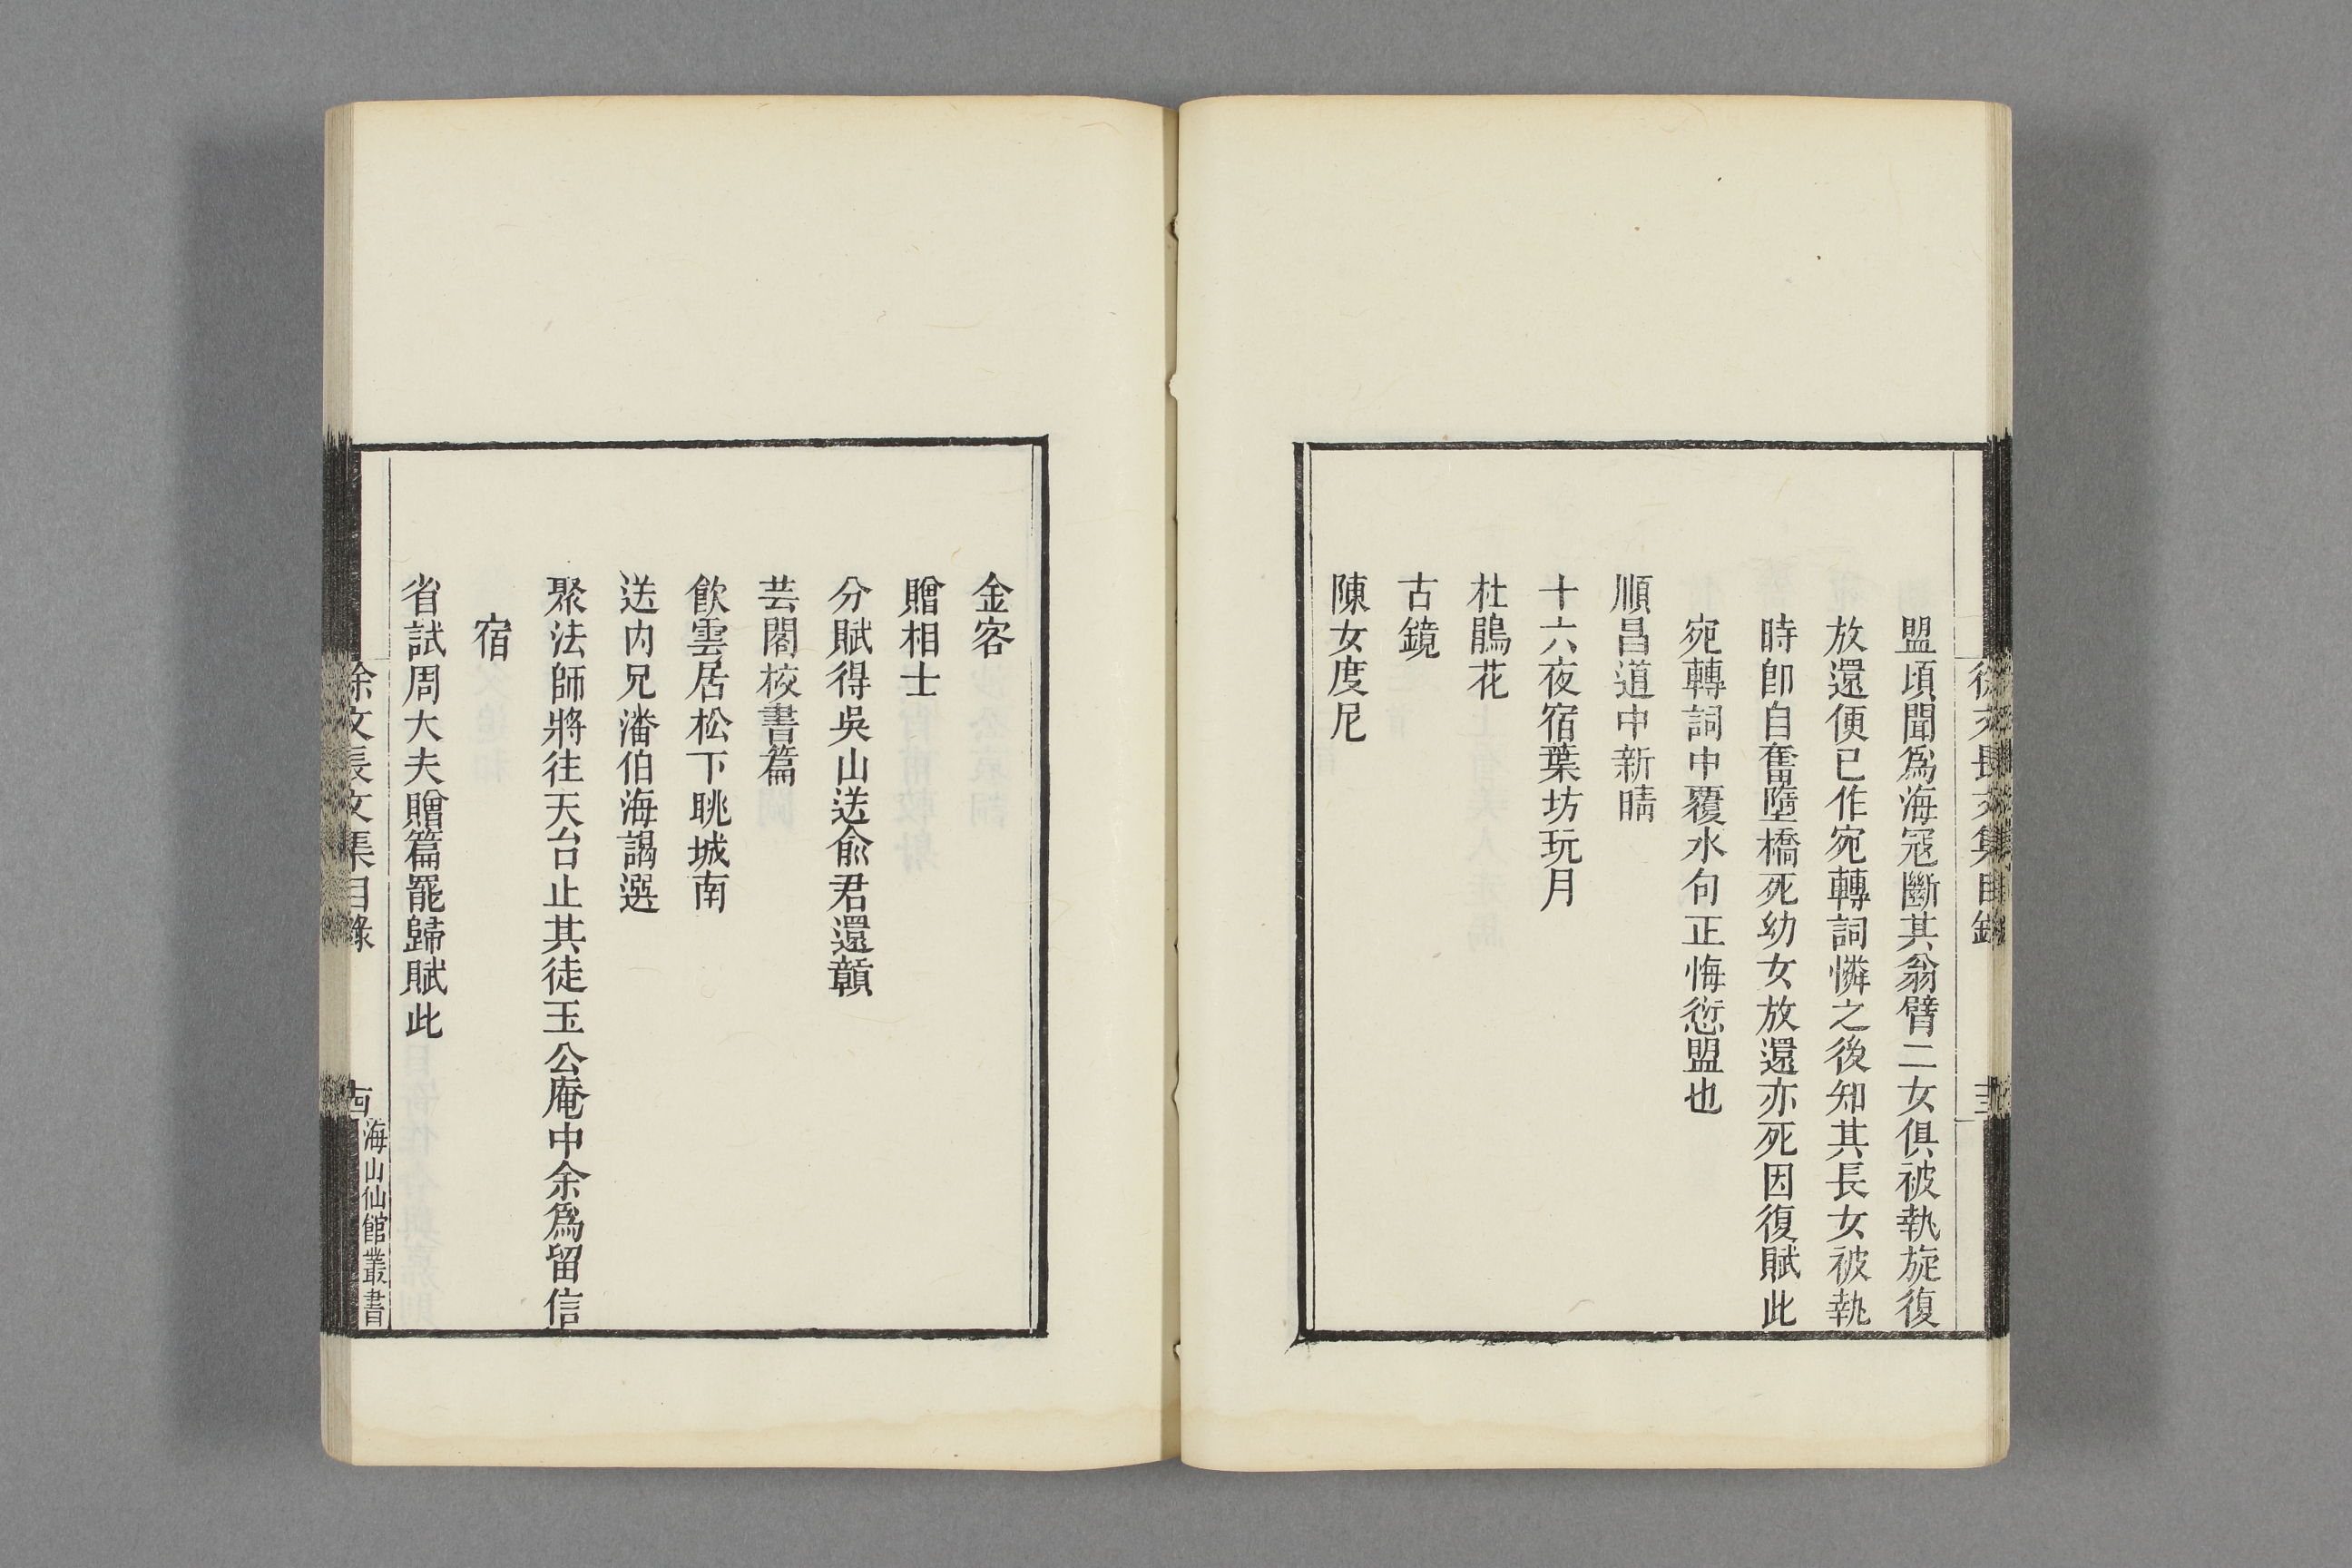 徐文長文集目錄
盟頃聞爲海冦斷其翁臂二女俱被執旋復
放還便已作宛轉詞憐之後知其長女被執
時卽自奮墮橋死幼女放還亦死因復賦此
宛轉詞中覆水句正悔愆盟也
順昌道中新晴
十六夜宿葉坊玩月
杜鵑花
古鏡
陳女度尼
金客
贈相士
分賦得吳山送俞君還贑
芸閣校書篇
飮雲居松下眺城南
送内兄潘伯海謁選
聚法師將往天台止其徒玉公庵中余爲留信
宿
省試周大夫贈篇罷歸賦此
徐文長文集目錄
海山仙館叢書